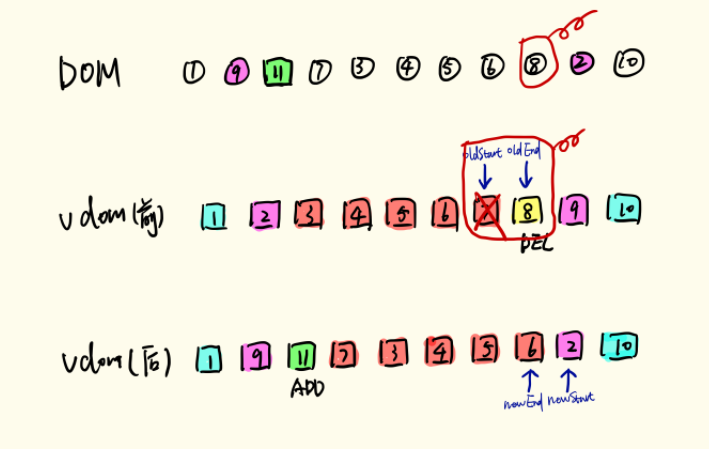 DOM ① ⑨ 11 ⑦ ③ ④ ⑤ ⑥ ⑧ ② ⑩
oldStart oldEnd
vdom(前) 1 2 3 4 5 6 8 9 10
DEL
vdom(后) 1 9 11 7 3 4 5 6 2 10
ADD
newEnd newStart